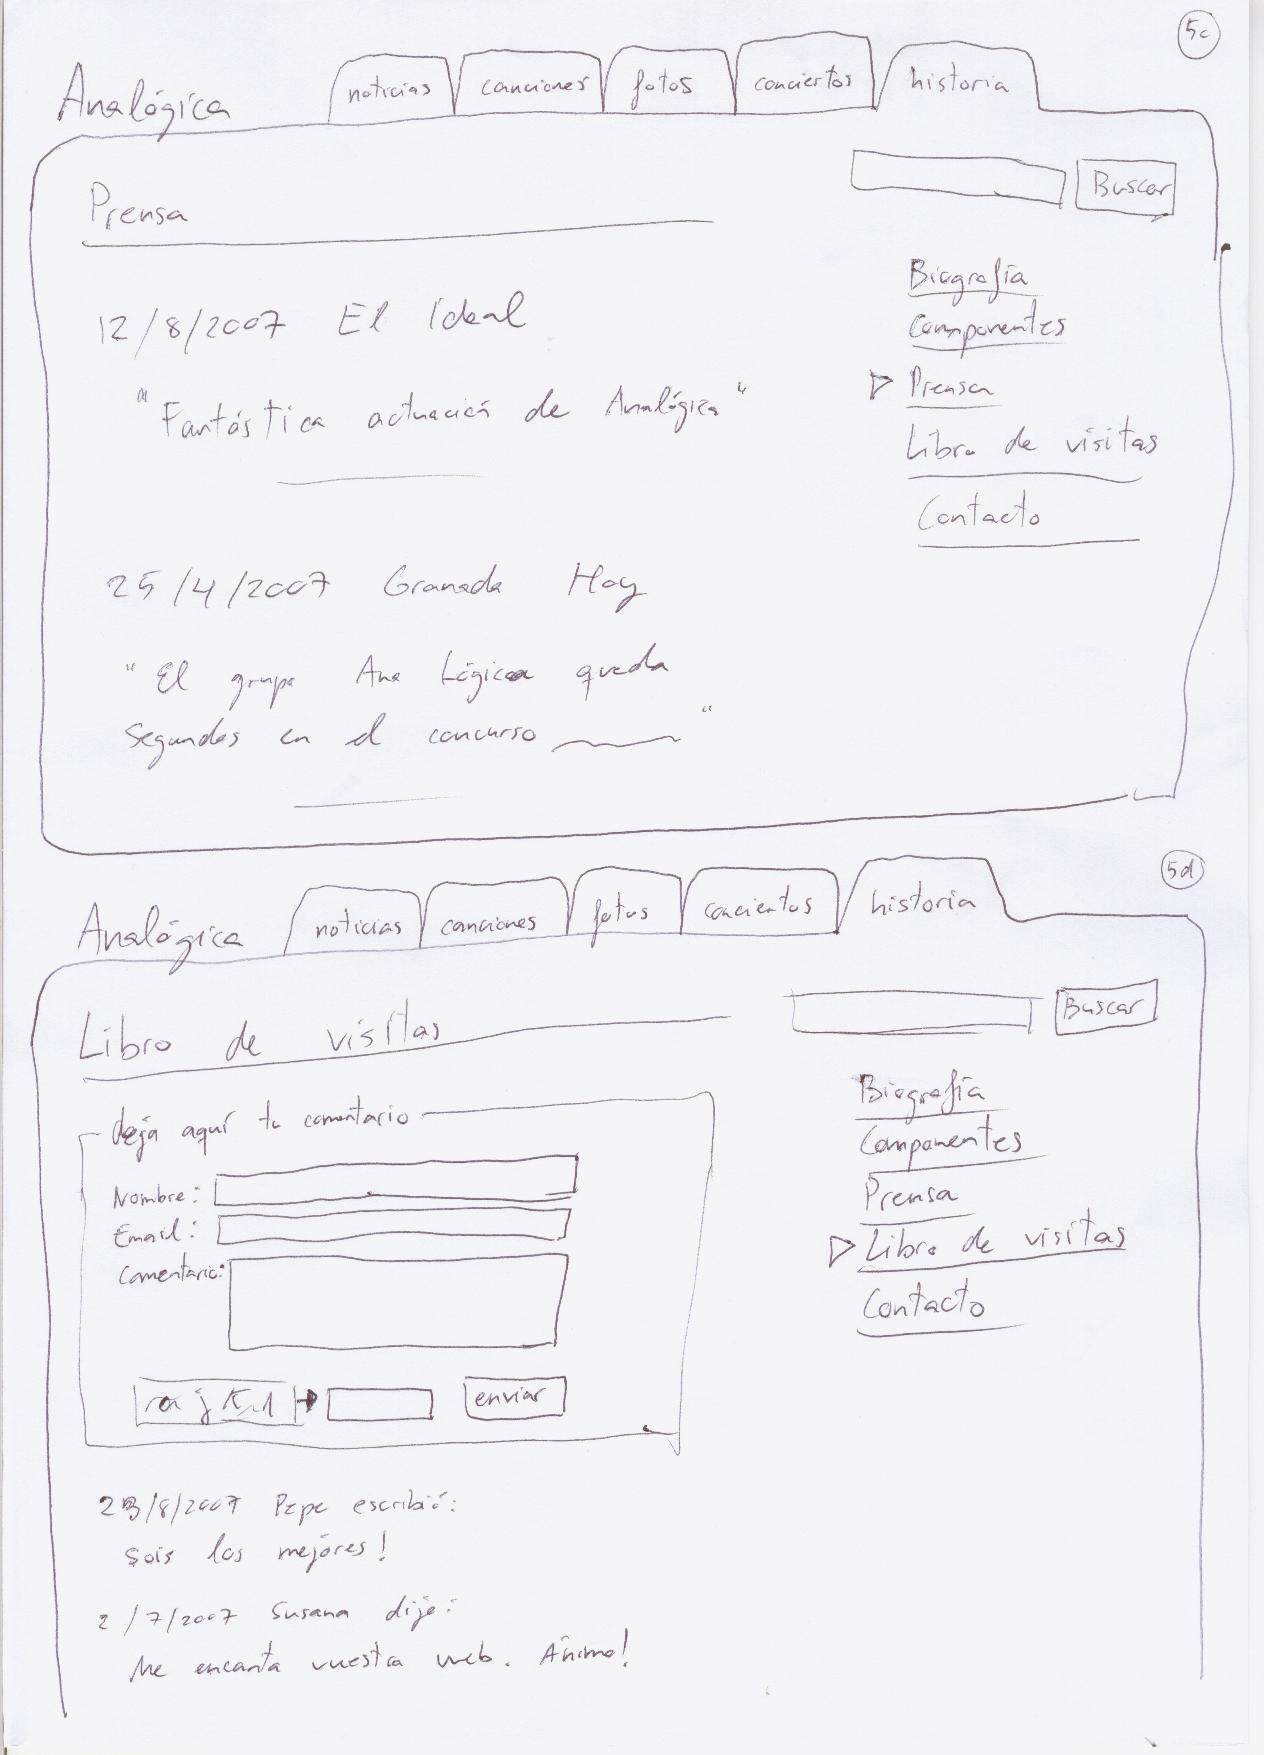 5c
Analógica noticias canciones fotos conciertos historia
Buscar
Prensa
12/8/2007 El Ideal
"Fantástica actuación de Analógica"
25/4/2007 Granada Hoy
"El grupo Ana Lógica queda
segundos en el concurso "
Biografía
Componentes
Prensa
Libro de visitas
Contacto
5d
Analógica noticias canciones fotos conciertos historia
Buscar
Libro de visitas
deja aquí tu comentario
Nombre:
Email:
Comentario:
enviar
23/8/2007 Pepe escribió:
Sois los mejores!
2/7/2007 Susana dijo:
Me encanta vuestra web. Ánimo!
Biografía
Componentes
Prensa
Libro de visitas
Contacto